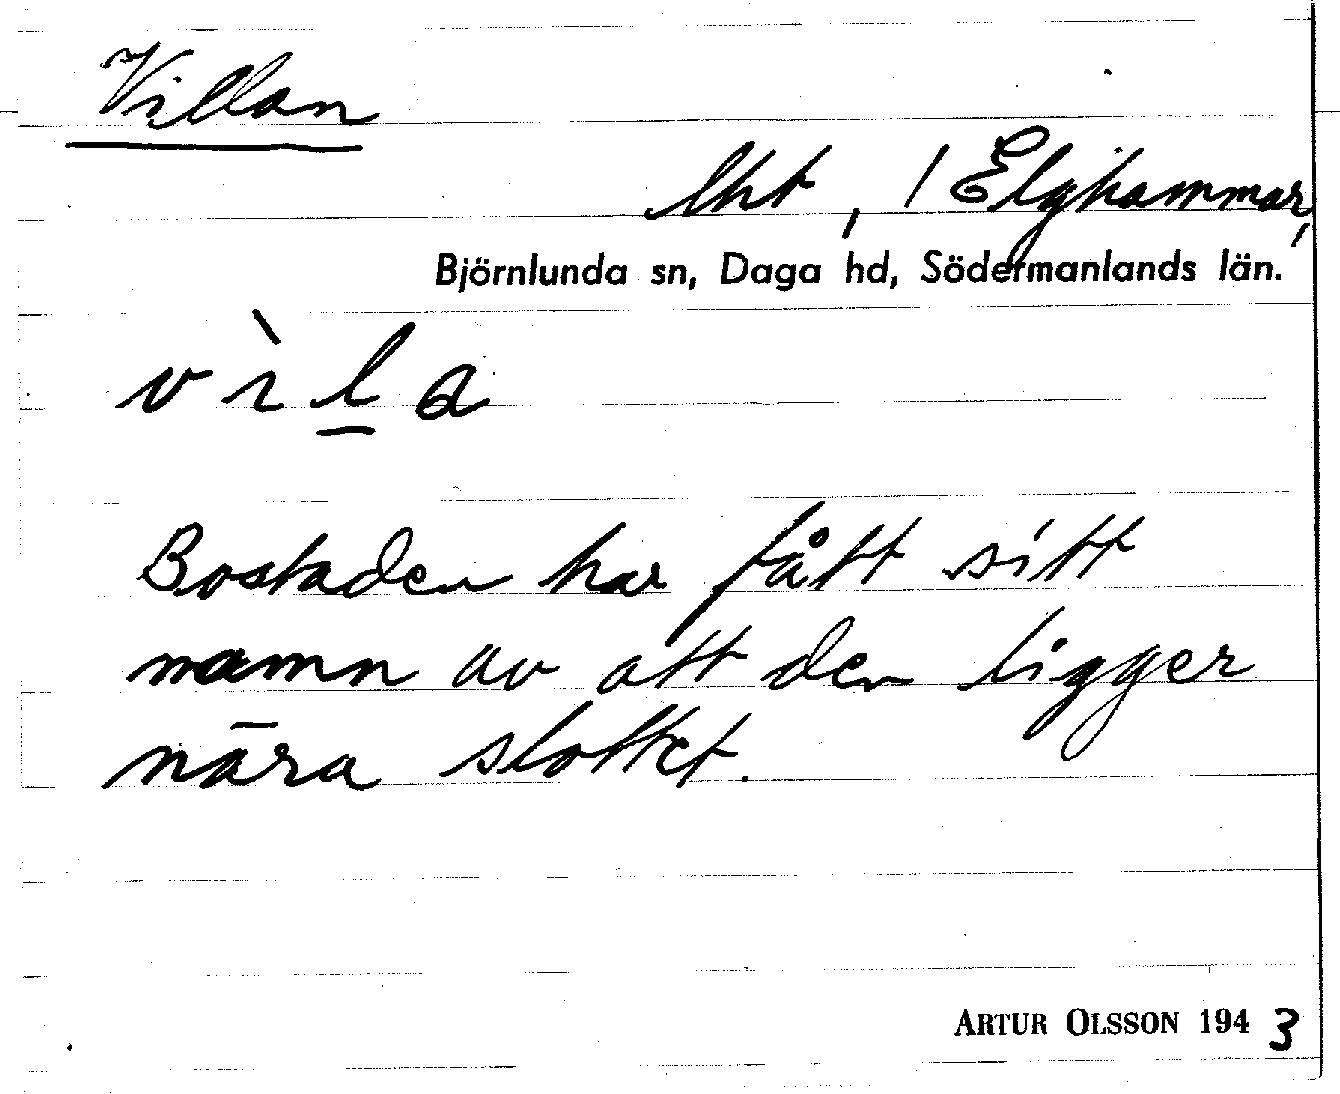 Villan
lht, 1 Elghammar,
Björnlunda sn, Daga hd, Södermanlands län.
vìla
Bostaden har fått sitt
namn av att den ligger
nära slottet.
ARTUR OLSSON 1943